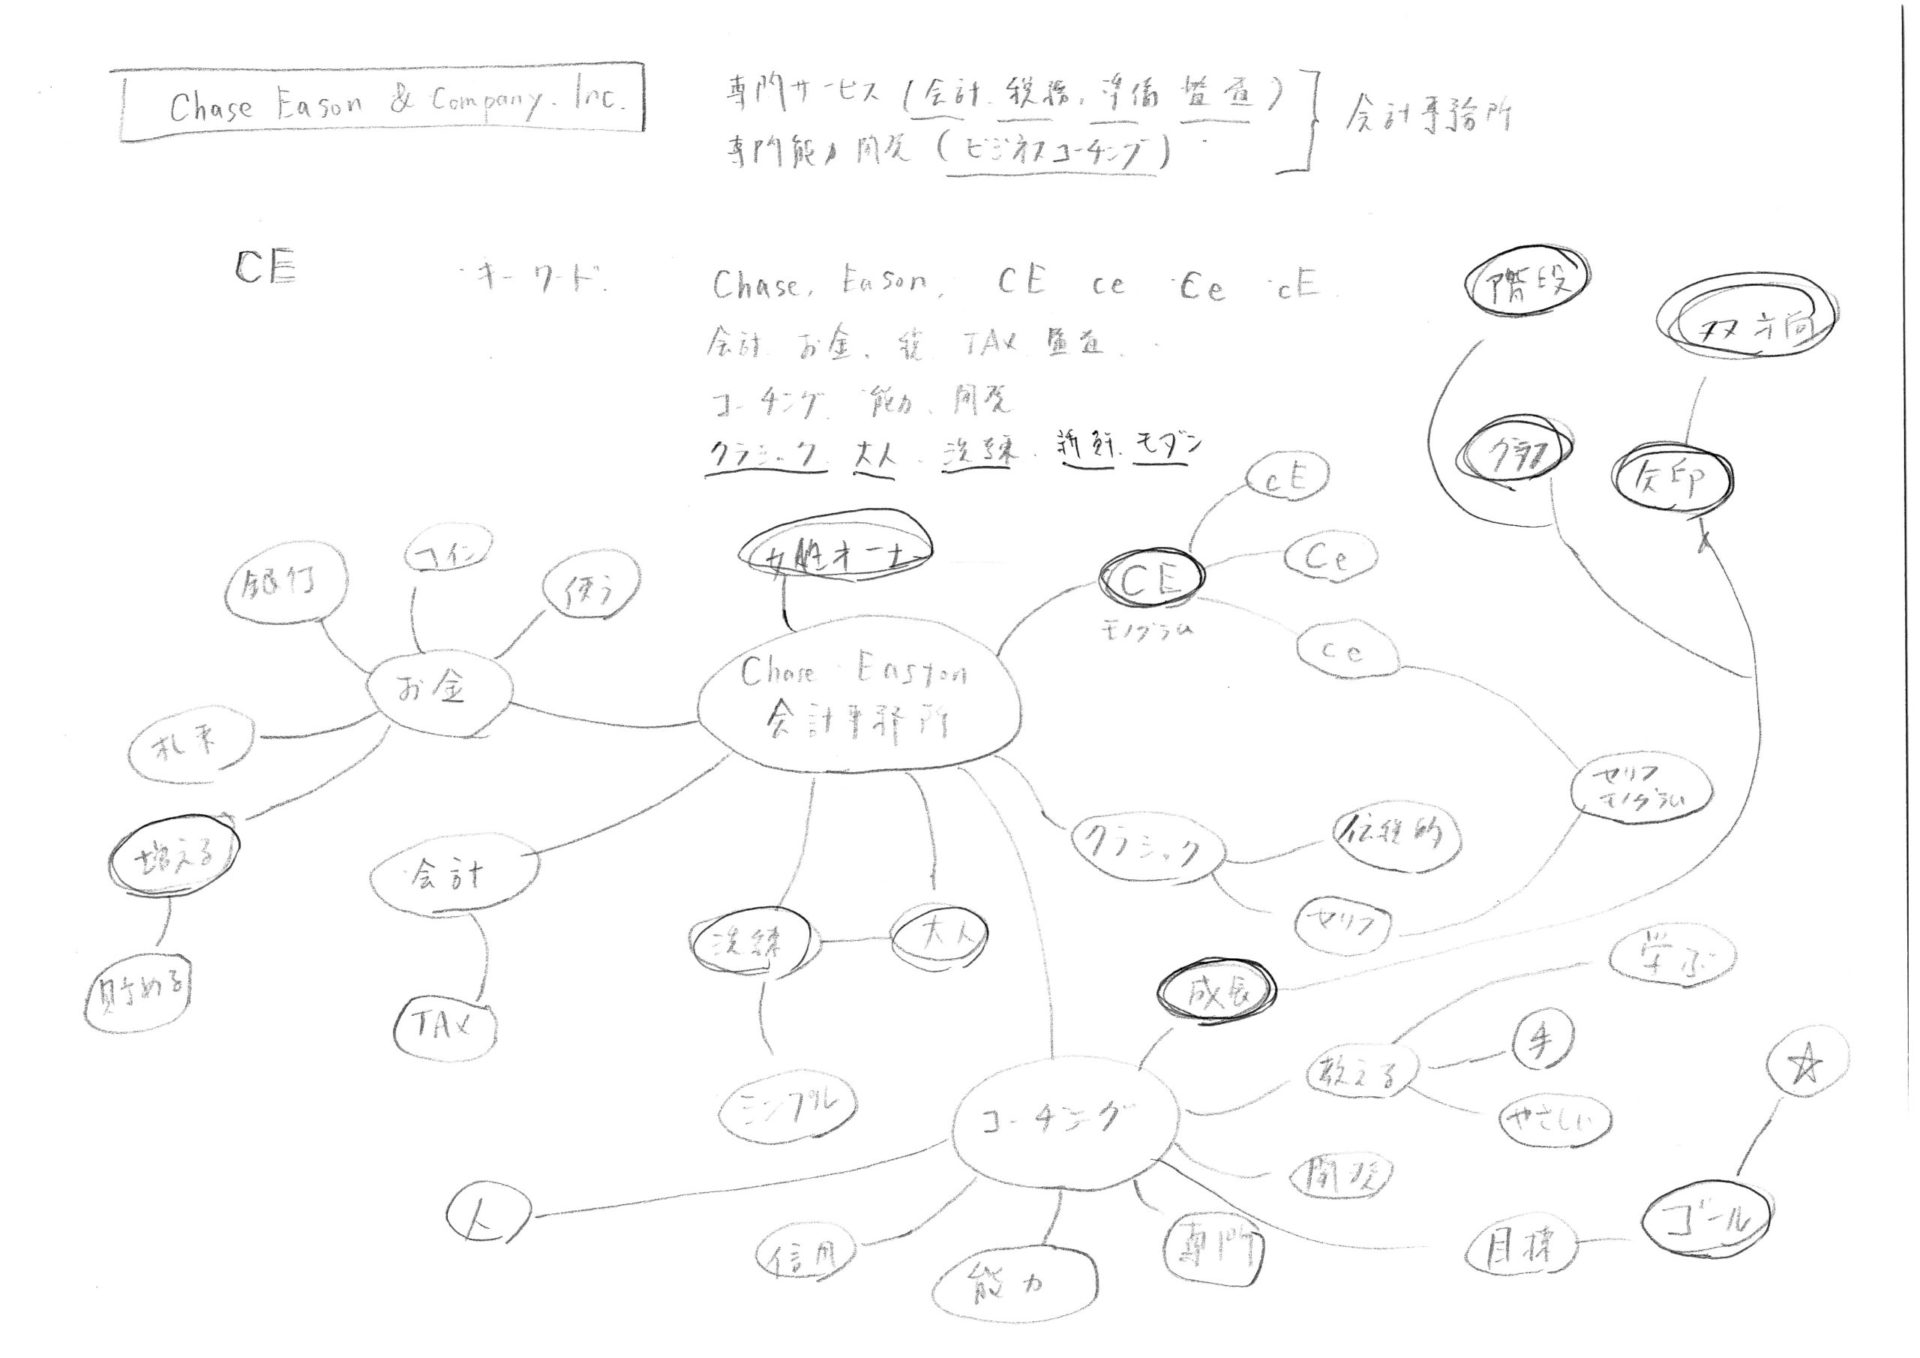 Chase Eason & Company. Inc.
専門サービス (会計、税務、準備 監査)
専門能力開発 (ビジネスコーチング)
会計事務所
CE
キーワード
Chase, Eason, CE ce Ce cE
会計 お金、税 TAX 監査
コーチング 能力、開発
クラシック 大人 洗練 新鮮 モダン
階段
双方向
グラフ
矢印
cE
Ce
CE
モノグラム
ce
女性オーナー
銀行
コイン
使う
お金
Chase Easton
会計事務所
札束
増える
貯める
会計
TAX
洗練
大人
シンプル
クラシック
伝統的
セリフ
セリフ
モノグラム
成長
学ぶ
教える
手
やさしい
☆
コーチング
開発
人
信用
能力
専門
目標
ゴール